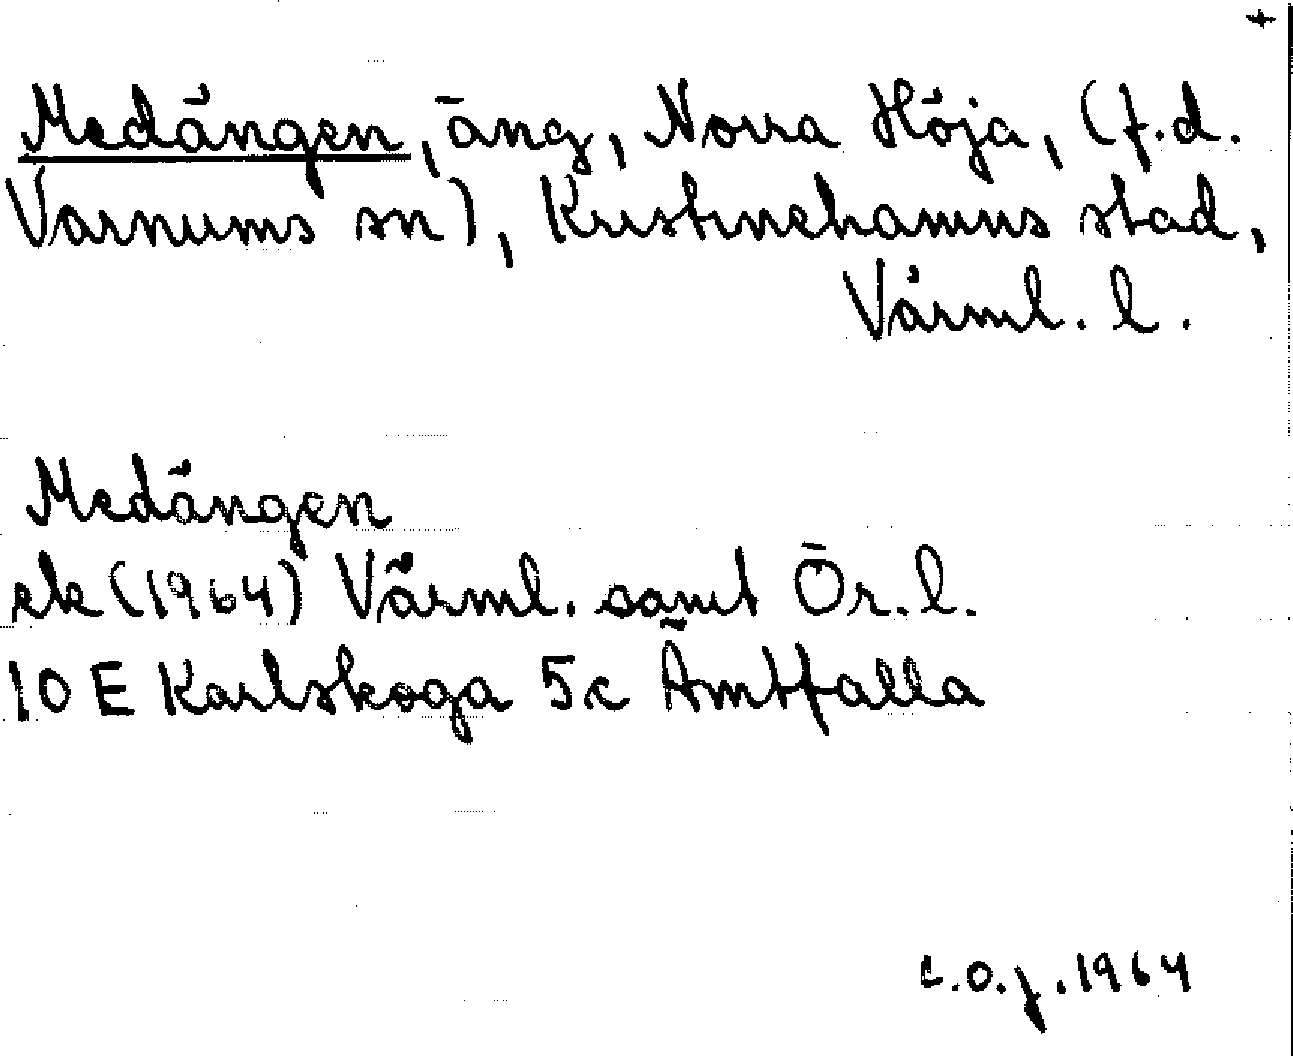 +
Medängen, äng, Norra Höja, (f.d.
Varnums sn), Kristinehamns stad,
Värml. l.
Medängen
ek (1964) Värml. samt Ör. l.
10 E Karlskoga 5c Åmtfalla
L.O.J. 1964